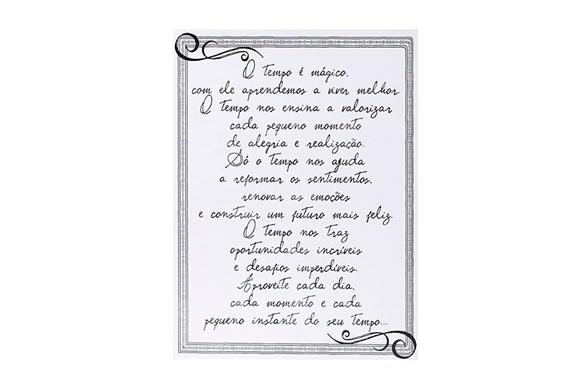 O Tempo é mágico,
com ele aprendemos a viver melhor.
O Tempo nos ensina a valorizar
cada pequeno momento
de alegria e realização.
Só o Tempo nos ajuda
a reformar os sentimentos,
renovar as emoções
e construir um futuro mais feliz.
O Tempo nos traz
oportunidades incríveis
e desafios imperdíveis.
Aproveite cada dia,
cada momento e cada
pequeno instante do seu Tempo...